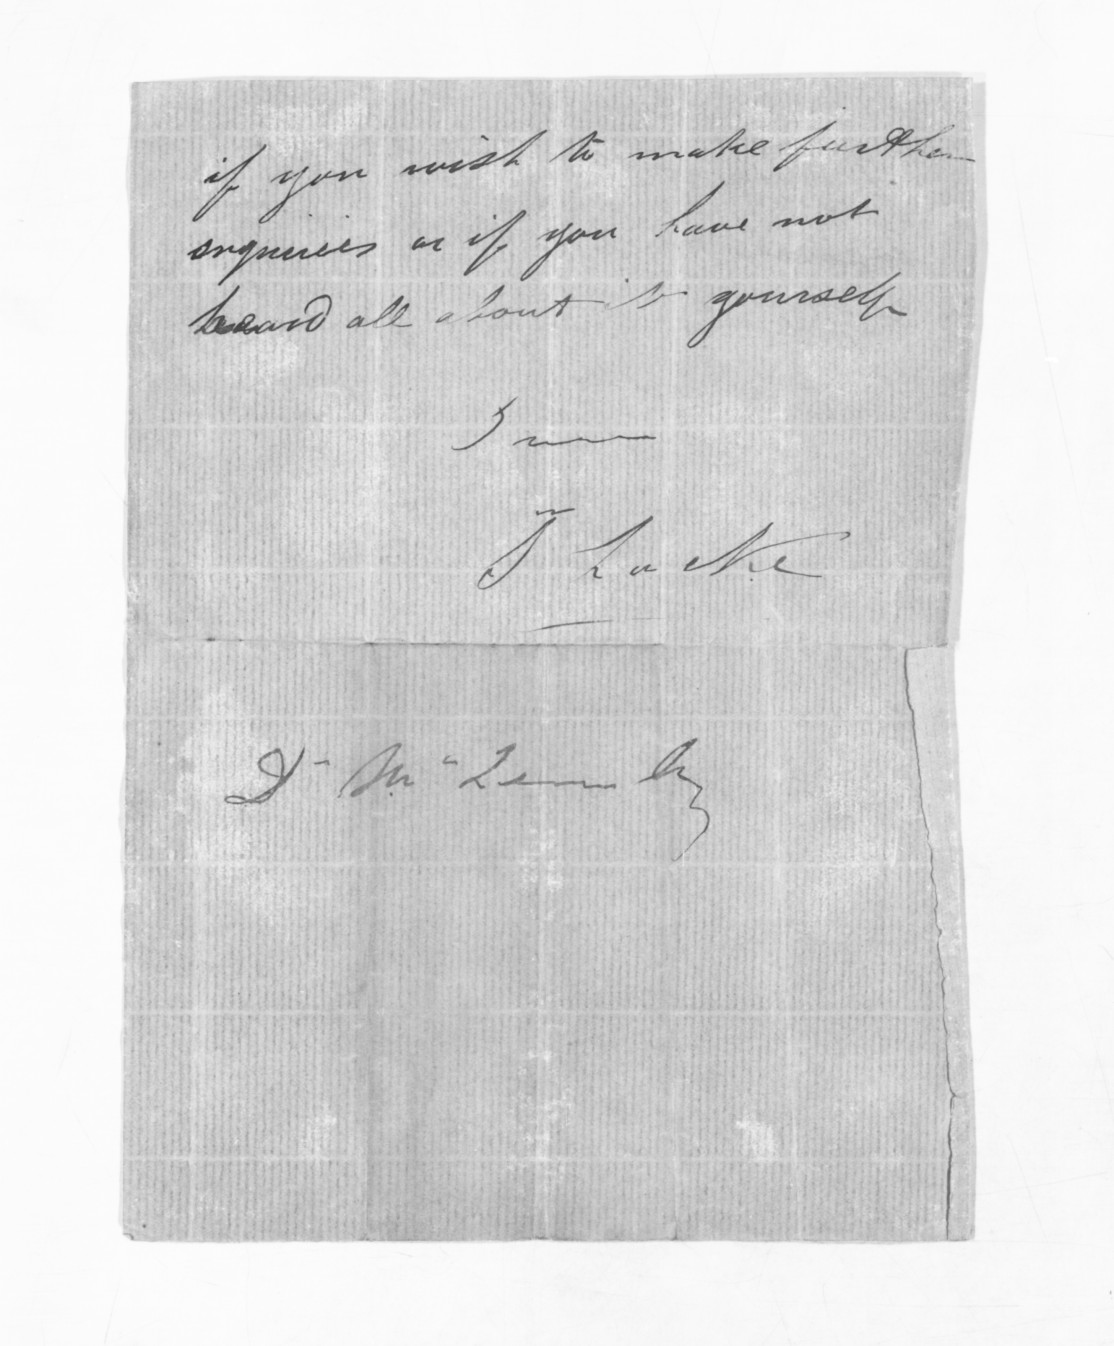 if you wish to make further
enquiries or if you have not
heard all about it yourself
Locke
Dr